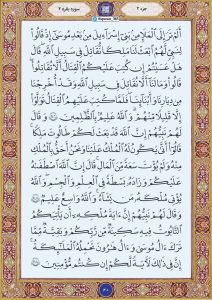 جزء ۲
سوره بقره ۲
أَلَمْ تَرَ إِلَى ٱلْمَلَإِ مِنۢ بَنِىٓ إِسْرَٰٓءِيلَ مِنۢ بَعْدِ مُوسَىٰٓ إِذْ قَالُوا۟
لِنَبِىٍّ لَّهُمُ ٱبْعَثْ لَنَا مَلِكًا نُّقَٰتِلْ فِى سَبِيلِ ٱللَّهِ قَالَ
هَلْ عَسَيْتُمْ إِن كُتِبَ عَلَيْكُمُ ٱلْقِتَالُ أَلَّا تُقَٰتِلُوا۟
قَالُوا۟ وَمَا لَنَآ أَلَّا نُقَٰتِلَ فِى سَبِيلِ ٱللَّهِ وَقَدْ أُخْرِجْنَا
مِن دِيَٰرِنَا وَأَبْنَآئِنَا فَلَمَّا كُتِبَ عَلَيْهِمُ ٱلْقِتَالُ تَوَلَّوْا۟
إِلَّا قَلِيلًا مِّنْهُمْ وَٱللَّهُ عَلِيمٌۢ بِٱلظَّٰلِمِينَ ۝٢٤٦ وَقَالَ
لَهُمْ نَبِيُّهُمْ إِنَّ ٱللَّهَ قَدْ بَعَثَ لَكُمْ طَالُوتَ مَلِكًا
قَالُوٓا۟ أَنَّىٰ يَكُونُ لَهُ ٱلْمُلْكُ عَلَيْنَا وَنَحْنُ أَحَقُّ بِٱلْمُلْكِ
مِنْهُ وَلَمْ يُؤْتَ سَعَةً مِّنَ ٱلْمَالِ قَالَ إِنَّ ٱللَّهَ ٱصْطَفَىٰهُ
عَلَيْكُمْ وَزَادَهُۥ بَسْطَةً فِى ٱلْعِلْمِ وَٱلْجِسْمِ وَٱللَّهُ
يُؤْتِى مُلْكَهُۥ مَن يَشَآءُ وَٱللَّهُ وَٰسِعٌ عَلِيمٌ ۝٢٤٧
وَقَالَ لَهُمْ نَبِيُّهُمْ إِنَّ ءَايَةَ مُلْكِهِۦٓ أَن يَأْتِيَكُمُ
ٱلتَّابُوتُ فِيهِ سَكِينَةٌ مِّن رَّبِّكُمْ وَبَقِيَّةٌ مِّمَّا
تَرَكَ ءَالُ مُوسَىٰ وَءَالُ هَٰرُونَ تَحْمِلُهُ ٱلْمَلَٰٓئِكَةُ
إِنَّ فِى ذَٰلِكَ لَءَايَةً لَّكُمْ إِن كُنتُم مُّؤْمِنِينَ ۝٢٤٨
۴۰